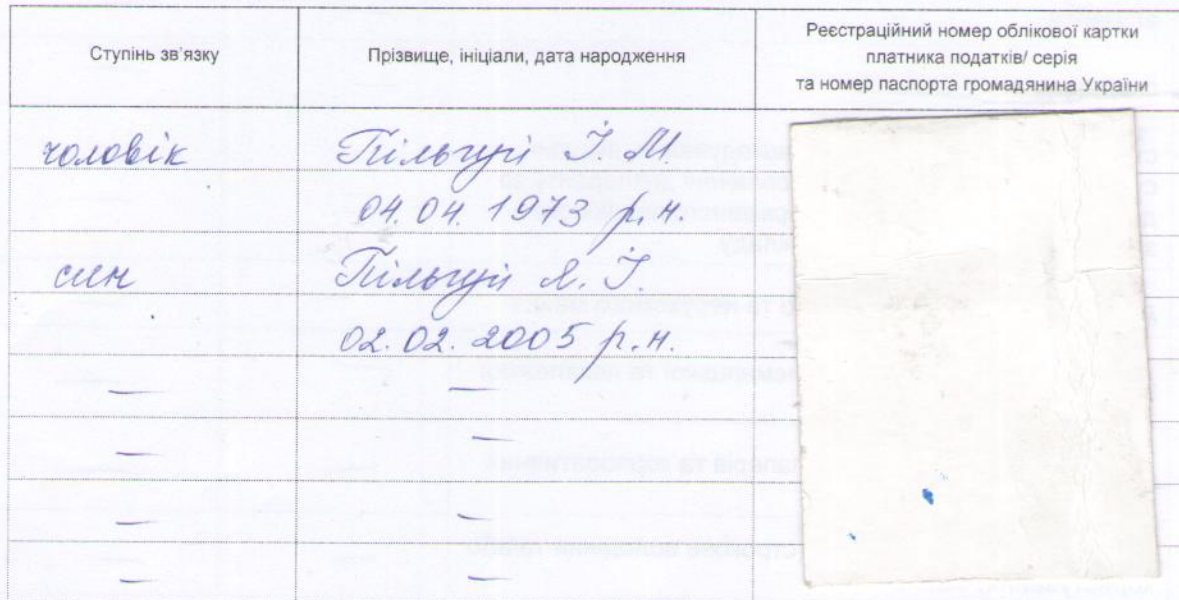 Ступінь зв'язку
Прізвище, ініціали, дата народження
Реєстраційний номер облікової картки
платника податків/ серія
та номер паспорта громадянина України
чоловік Пільгуй І. М.
04.04. 1973 р.н.
син Пільгуй Я. І.
02.02. 2005 р.н.
— —
— —
— —
— —